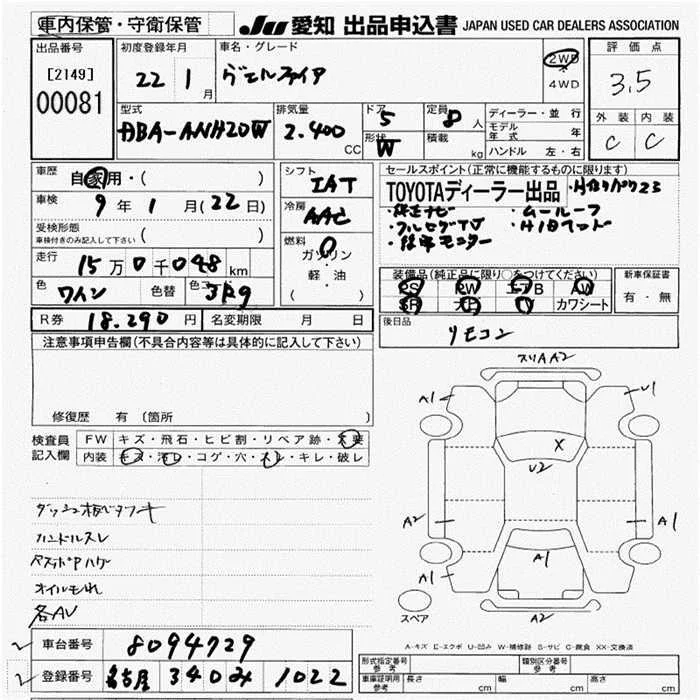 車内保管・守衛保管
JU 愛知 出品申込書 JAPAN USED CAR DEALERS ASSOCIATION
出品番号
[2149]
00081
初度登録年月
22 1 月
車名・グレード
ヴェルファイア
2WD
4WD
評価点
3.5
外装 内装
C C
型式
DBA-ANH20W
排気量
2.400 CC
ドア 5
形状 W
定員 8 人
積載 kg
ディーラー・並行
モデル年式 年
ハンドル 左・右
車歴
自家用・( )
車検
9 年 1 月(22日)
受検形態
車検付きのみ記入して下さい ( )
走行
15万0千048km
色 ワイン
色替
色コー 3R9
シフト
IAT
冷房
AAC
燃料
ガソリン
軽・油
( )
セールスポイント(正常に機能するものに限ります)
TOYOTAディーラー出品
・純正ナビ
・フルセグTV
・ムールーフ
・後席モニター
装備品(純正品に限り○をつけてください)
PS PW エアB AW
SR カワ TV カワシート
新車保証書
有・無
後日品
リモコン
R券 18.290 円
名変期限 月 日
注意事項申告欄(不具合内容等は具体的に記入して下さい)
修復歴 有 〔箇所
検査員
記入欄
FW キズ・飛石・ヒビ割・リペア跡・交要
内装 キズ・汚レ・コゲ・穴・スレ・キレ・破レ
ハンドルスレ
オイルもれ
各AU
スリAA2
A1
U1
X
U2
A2
A1
A1
A1
A2
スペア
A-キズ E-エクボ U-凹み W-補修跡 S-サビ C-腐食 XX-交換済
車台番号 8094729
登録番号 名古屋 340 み 1022
形式指定番号
参考
類別区分番号
参考
車庫証明用
参考
長さ cm
幅 cm
高さ cm